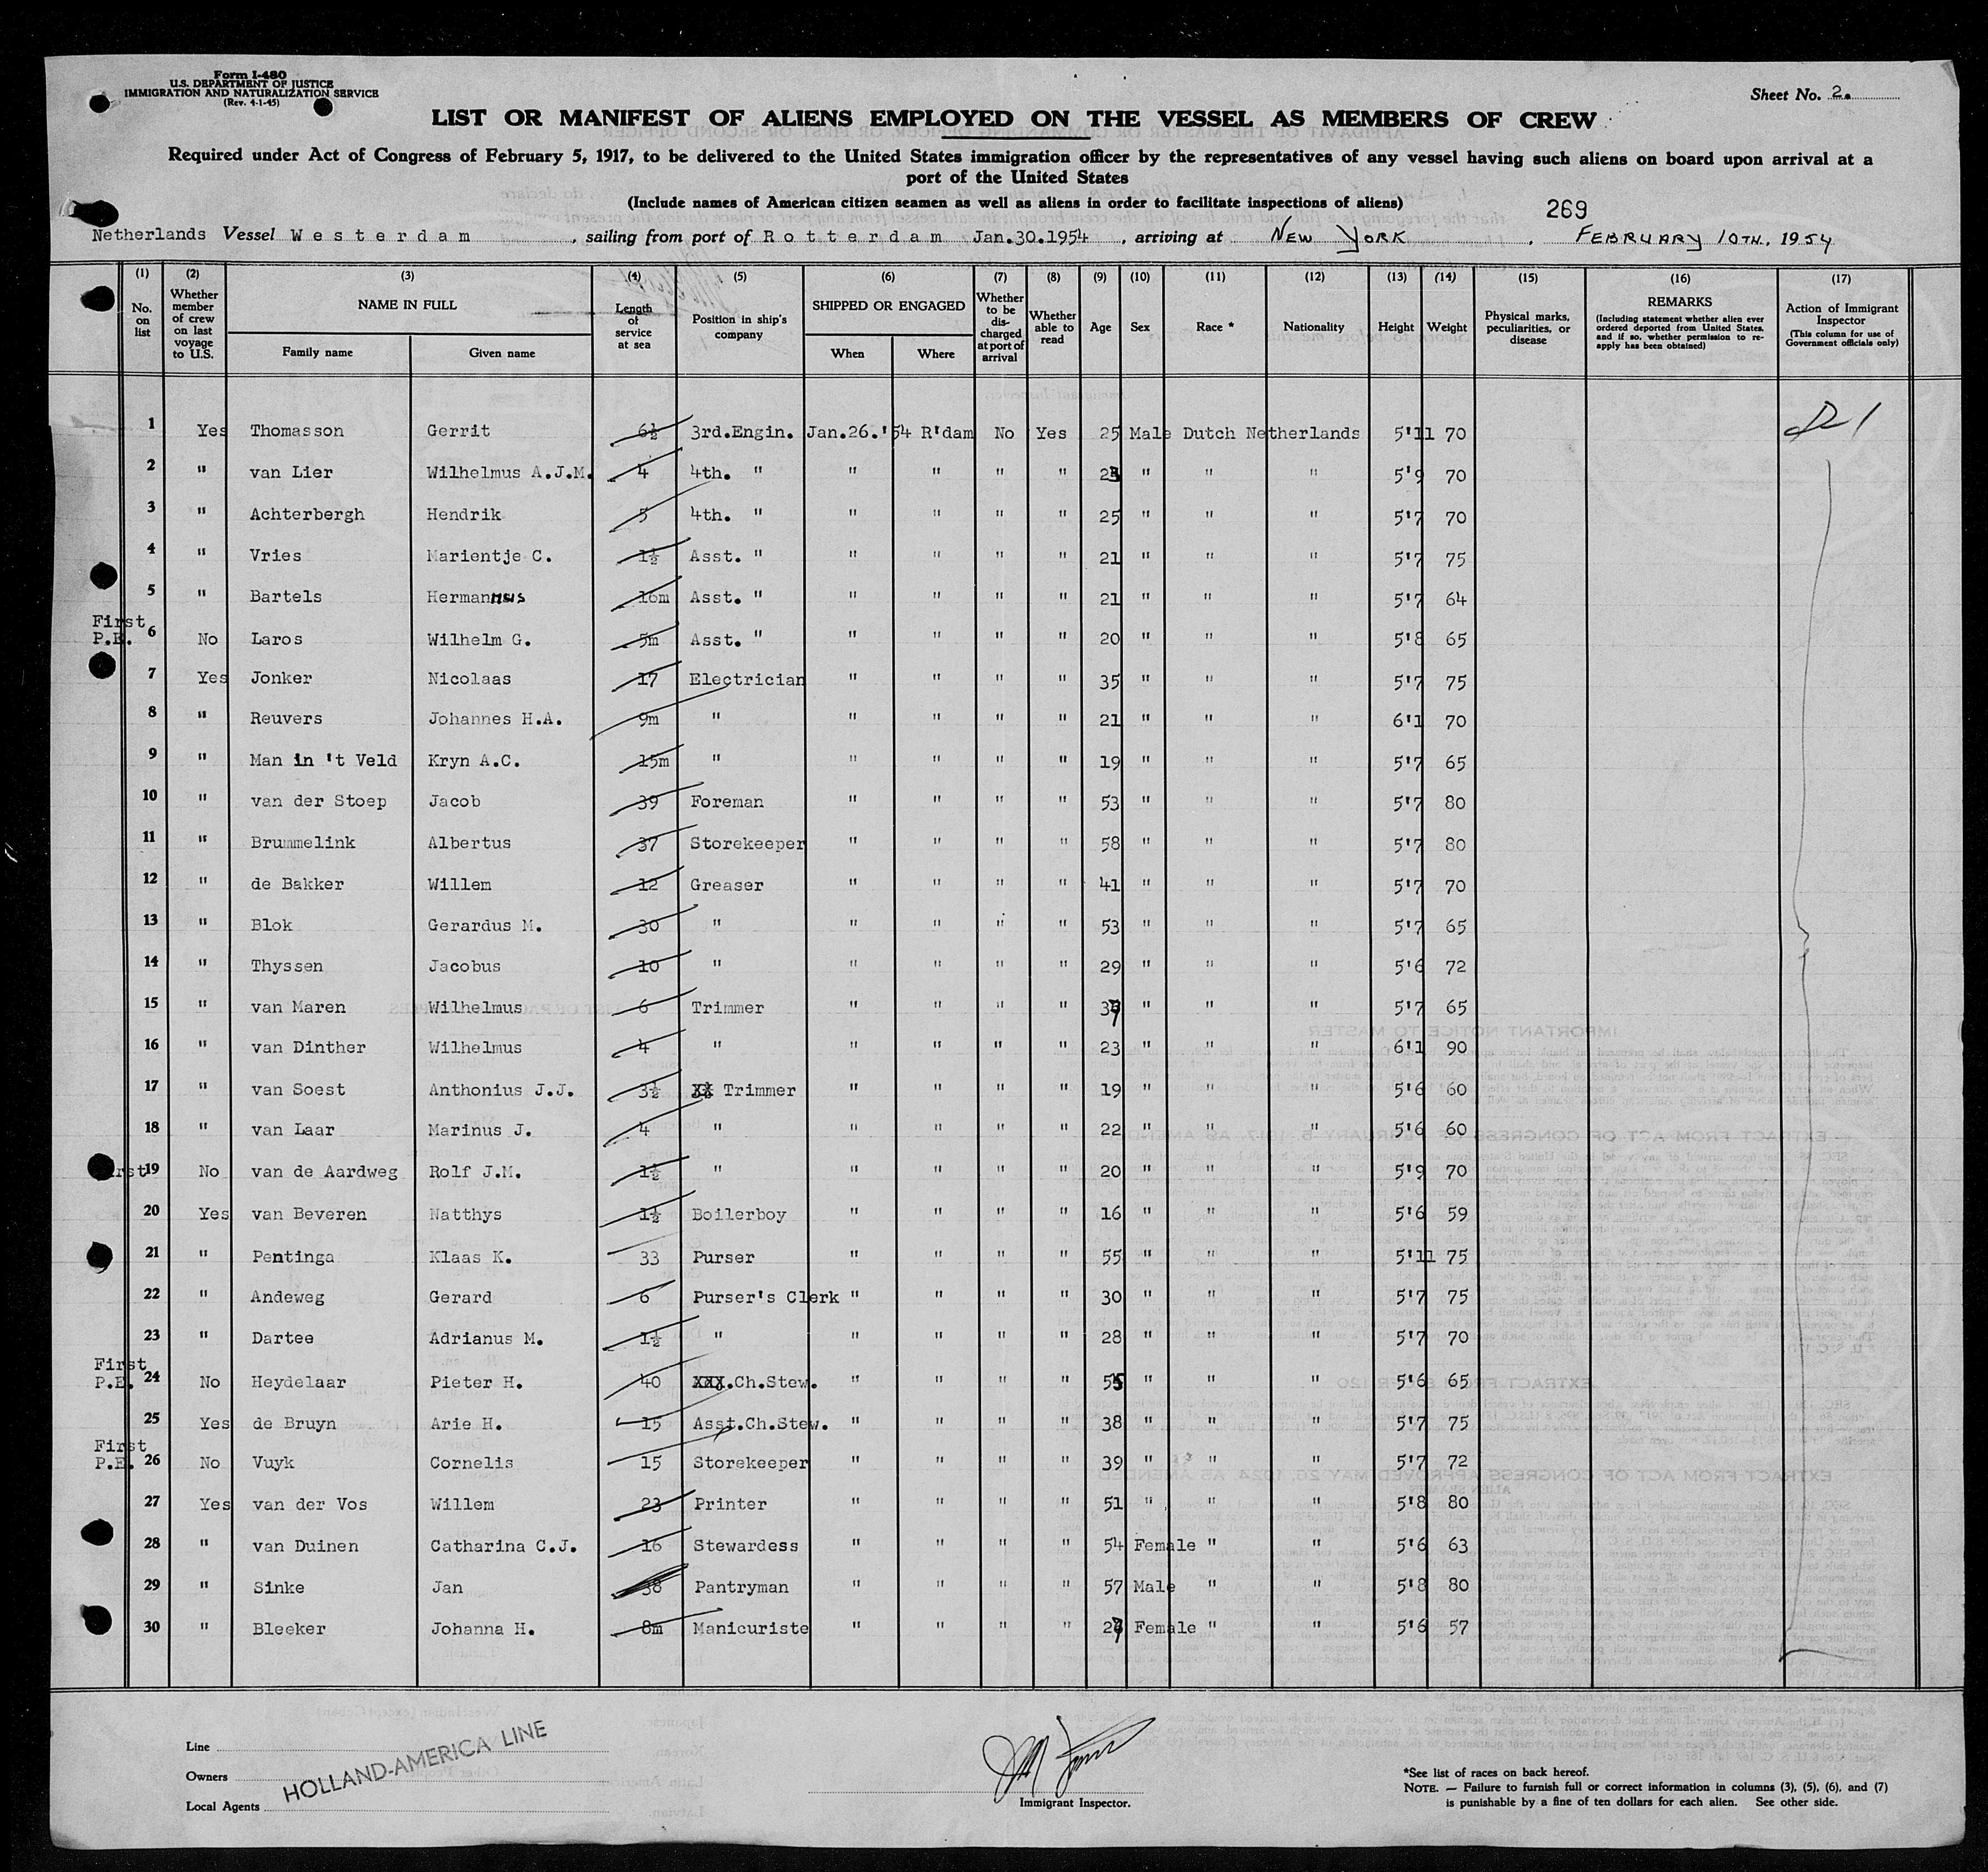 Form I-480
U.S. DEPARTMENT OF JUSTICE
IMMIGRATION AND NATURALIZATION SERVICE
(Rev. 4-1-45)
Sheet No. 2.
LIST OR MANIFEST OF ALIENS EMPLOYED ON THE VESSEL AS MEMBERS OF CREW
Required under Act of Congress of February 5, 1917, to be delivered to the United States immigration officer by the representatives of any vessel having such aliens on board upon arrival at a
port of the United States
(Include names of American citizen seamen as well as aliens in order to facilitate inspections of aliens)
269
Netherlands Vessel Westerdam, sailing from port of Rotterdam Jan.30.1954, arriving at NEW YORK, FEBRUARY 10TH, 1954
(1) (2) (3) (4) (5) (6) (7) (8) (9) (10) (11) (12) (13) (14) (15) (16) (17)
No. on list
Whether member of crew on last voyage to U.S.
NAME IN FULL
Family name Given name
Length of service at sea
Position in ship's company
SHIPPED OR ENGAGED
When Where
Whether to be discharged at port of arrival
Whether able to read
Age Sex Race * Nationality Height Weight
Physical marks, peculiarities, or disease
REMARKS
(Including statement whether alien ever ordered deported from United States, and if so, whether permission to reapply has been obtained)
Action of Immigrant Inspector
(This column for use of Government officials only)
1 Yes Thomasson Gerrit 6½ 3rd.Engin. Jan.26.'54 R'dam No Yes 25 Male Dutch Netherlands 5'11 70
2 " van Lier Wilhelmus A.J.M. 4 4th. " " " " " " " " 5'9 70
3 " Achterbergh Hendrik 5 4th. " " " " " 25 " " " 5'7 70
4 " Vries Marientje C. 1½ Asst. " " " " " 21 " " " 5'7 75
5 " Bartels Hermannus 16m Asst. " " " " " 21 " " " 5'7 64
First P.E. 6 No Laros Wilhelm G. 5m Asst. " " " " " 20 " " " 5'8 65
7 Yes Jonker Nicolaas 17 Electrician " " " " 35 " " " 5'7 75
8 " Reuvers Johannes H.A. 9m " " " " " 21 " " " 6'1 70
9 " Man in 't Veld Kryn A.C. 15m " " " " " 19 " " " 5'7 65
10 " van der Stoep Jacob 39 Foreman " " " " 53 " " " 5'7 80
11 " Brummelink Albertus 37 Storekeeper " " " " 58 " " " 5'7 80
12 " de Bakker Willem 12 Greaser " " " " 41 " " " 5'7 70
13 " Blok Gerardus M. 30 " " " " " 53 " " " 5'7 65
14 " Thyssen Jacobus 10 " " " " " 29 " " " 5'6 72
15 " van Maren Wilhelmus 6 Trimmer " " " " 37 " " " 5'7 65
16 " van Dinther Wilhelmus 4 " " " " " 23 " " " 6'1 90
17 " van Soest Anthonius J.J. 3½ Trimmer " " " " 19 " " " 5'6 60
18 " van Laar Marinus J. 4 " " " " " 22 " " " 5'6 60
19 No van de Aardweg Rolf J.M. 1½ " " " " " 20 " " " 5'9 70
20 Yes van Beveren Natthys 1½ Boilerboy " " " " 16 " " " 5'6 59
21 " Pentinga Klaas K. 33 Purser " " " " 55 " " " 5'11 75
22 " Andeweg Gerard 6 Purser's Clerk " " " " 30 " " " 5'7 75
23 " Dartee Adrianus M. 1½ " " " " " 28 " " " 5'7 70
First P.E. 24 No Heydelaar Pieter H. 40 XXX.Ch.Stew. " " " " 55 " " " 5'6 65
25 Yes de Bruyn Arie H. 15 Asst.Ch.Stew. " " " " 38 " " " 5'7 75
First P.E. 26 No Vuyk Cornelis 15 Storekeeper " " " " 39 " " " 5'7 72
27 Yes van der Vos Willem 23 Printer " " " " 51 " " " 5'8 80
28 " van Duinen Catharina C.J. 16 Stewardess " " " " 54 Female " " 5'6 63
29 " Sinke Jan 38 Pantryman " " " " 57 Male " " 5'8 80
30 " Bleeker Johanna H. 8m Manicuriste " " " " 27 Female " " 5'6 57
Line
Owners
Local Agents
HOLLAND-AMERICA LINE
Immigrant Inspector.
*See list of races on back hereof.
NOTE. — Failure to furnish full or correct information in columns (3), (5), (6), and (7)
is punishable by a fine of ten dollars for each alien. See other side.